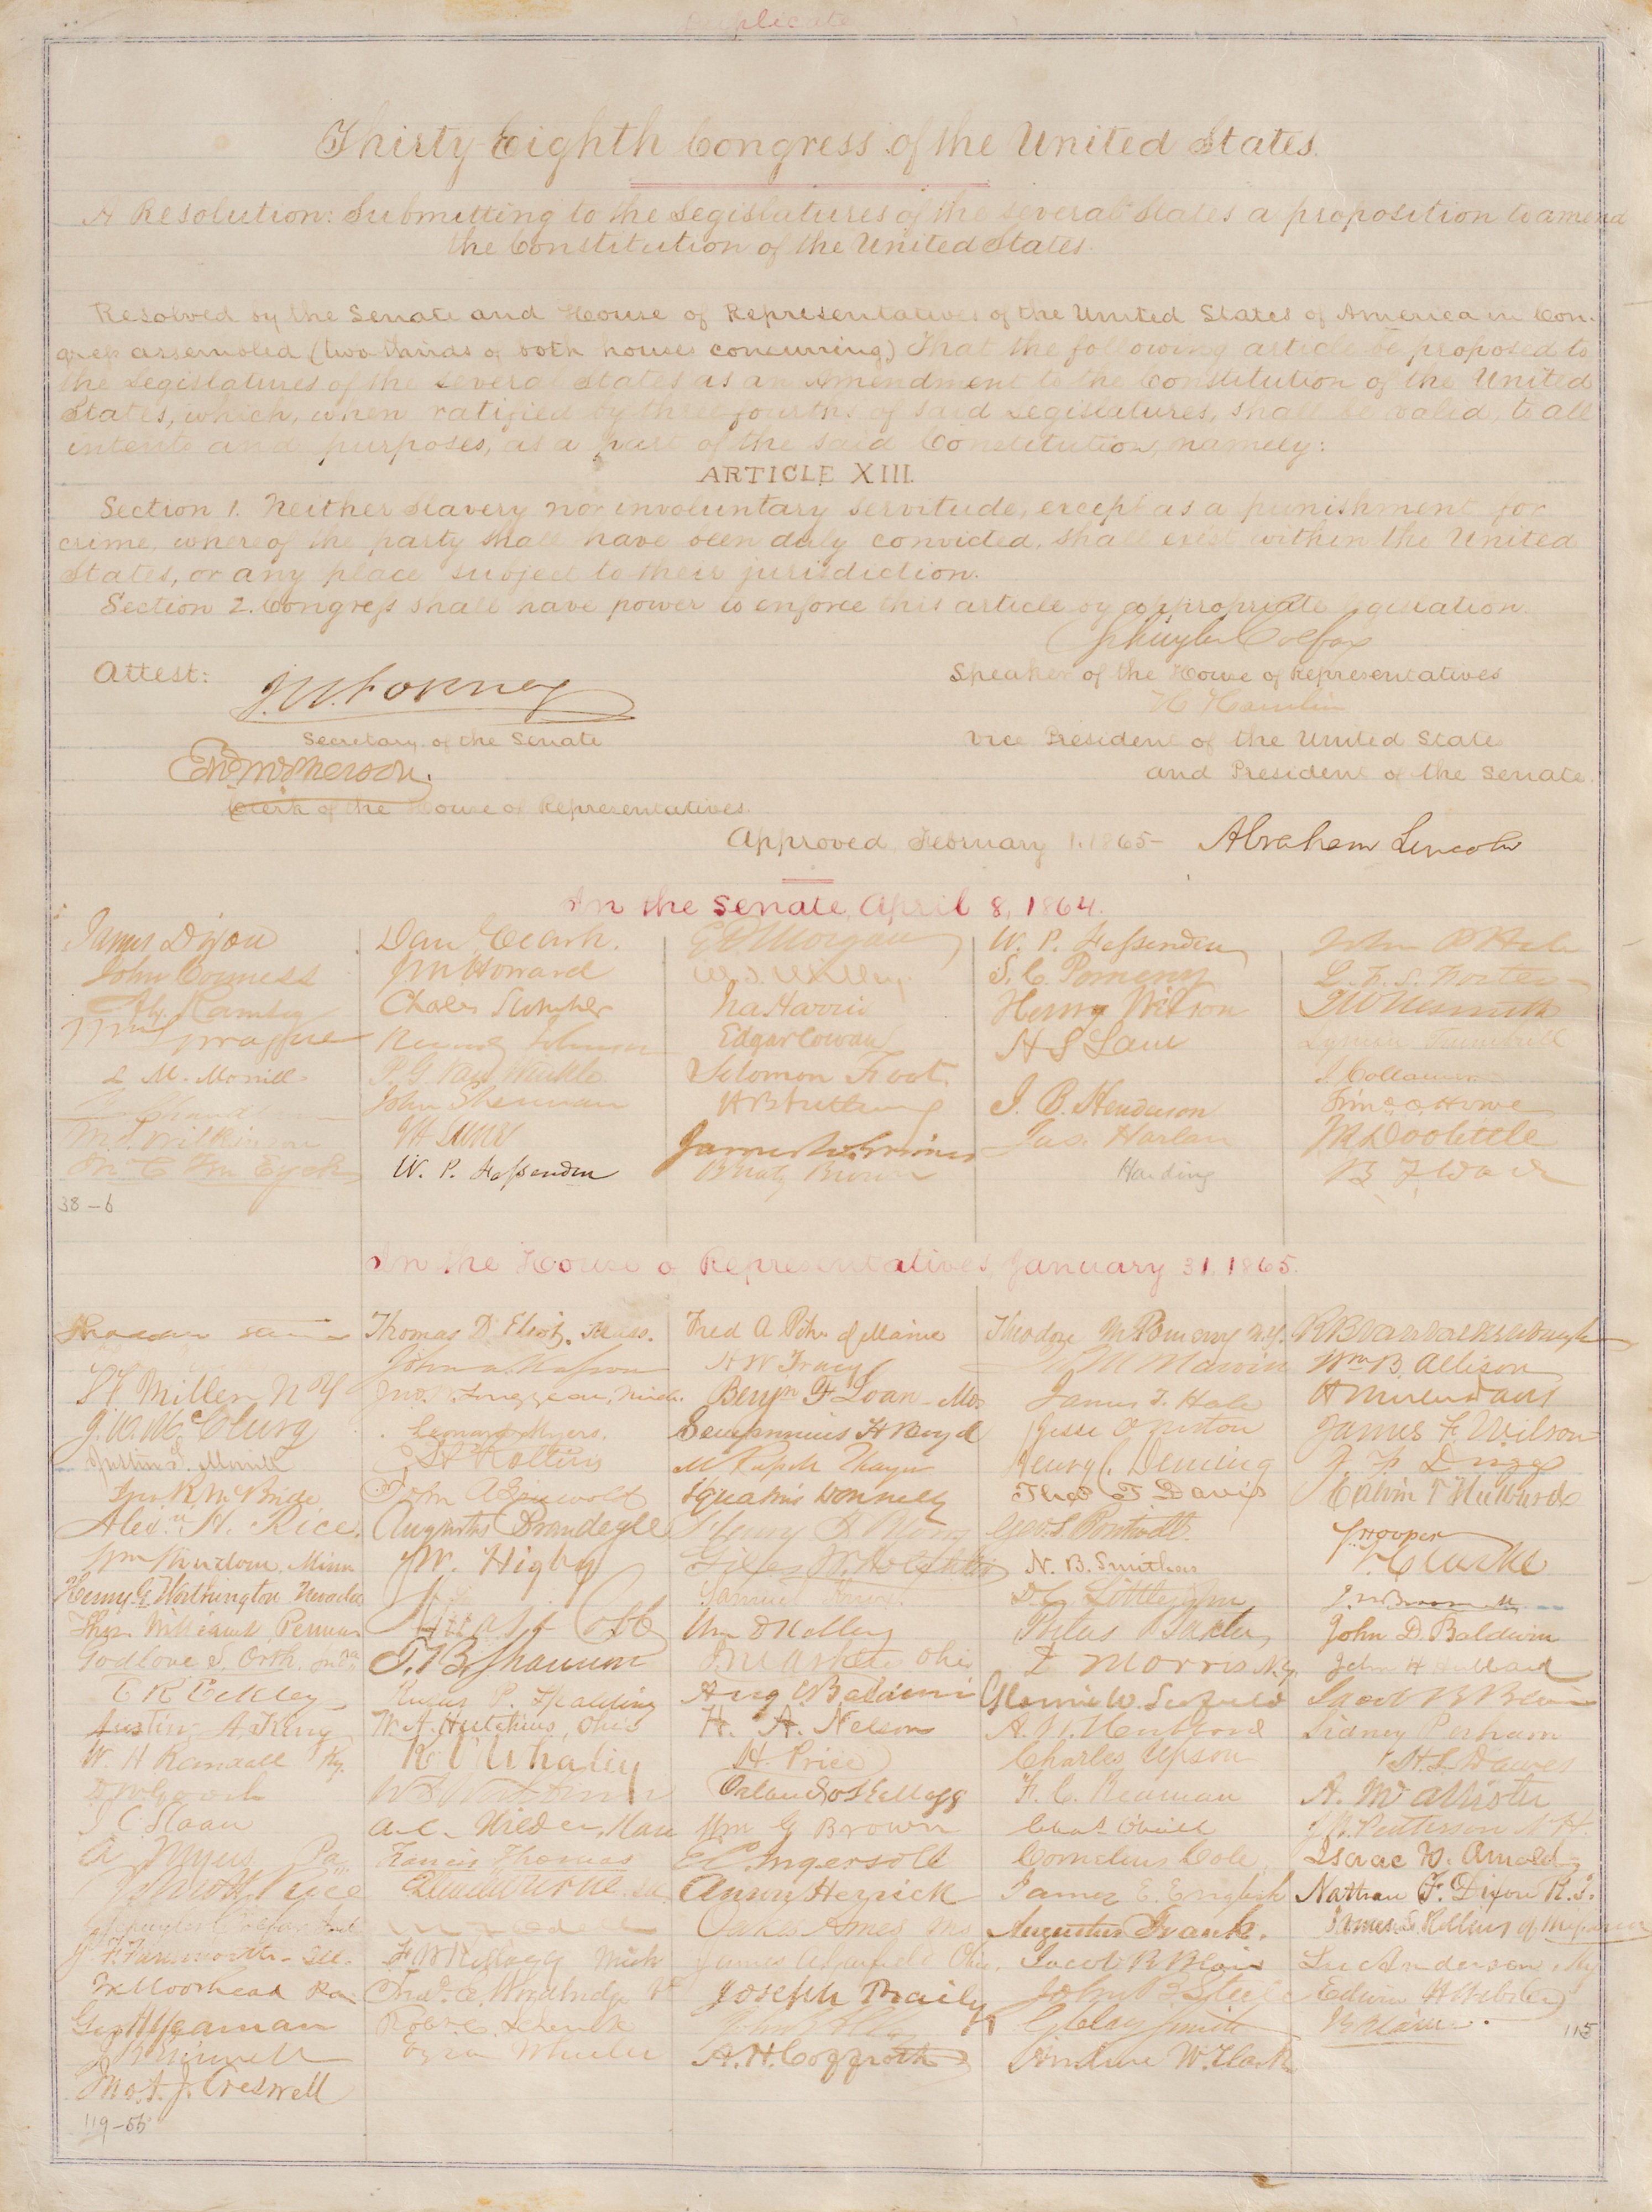 Duplicate
Thirty-Eighth Congress of the United States.
A Resolution: Submitting to the Legislatures of the several States a proposition to amend
the Constitution of the United States.
Resolved by the Senate and House of Representatives of the United States of America in Con-
gress assembled, (two thirds of both houses concurring,) That the following article be proposed to
the Legislatures of the several States as an Amendment to the Constitution of the United
States, which, when ratified by three fourths of said Legislatures, shall be valid, to all
intents and purposes, as a part of the said Constitution, namely:
ARTICLE XIII.
Section 1. Neither slavery nor involuntary servitude, except as a punishment for
crime, whereof the party shall have been duly convicted, shall exist within the United
States, or any place subject to their jurisdiction.
Section 2. Congress shall have power to enforce this article by appropriate legislation.
Schuyler Colfax
Attest:
Speaker of the House of Representatives
J. W. Forney
H Hamlin
Secretary of the Senate
Vice President of the United States
Edwd McPherson.
and President of the Senate.
Clerk of the House of Representatives.
Approved, February 1, 1865- Abraham Lincoln
In the Senate, April 8, 1864.
James Dixon Dan Clark. E D Morgan W. P. Fessenden John P Hale
John Conness J M Howard W. T. Willey S. C. Pomeroy L. F. S. Foster
Ramsey Charles Sumner Ira Harris Henry Wilson J W Nesmith
Sprague Reverdy Johnson Edgar Cowan H S Lane Lyman Trumbull
L. M. Morrill P. G. Van Winkle Solomon Foot. J. Collamer
John Sherman J. B. Henderson T. O. Howe
M. S. Wilkinson J H Lane James W. Grimes Jas. Harlan J R Doolittle
Ten Eyck W. P. Fessenden B Gratz Brown Harding B F Wade
38-6
In the House of Representatives January 31, 1865.
Thomas D. Eliot, Mass. Fred A Pike of Maine Theodore M Pomeroy N.Y. R B Van Valkenburgh
John A. Kasson Marvin Wm B. Allison
S F Miller N Y Benjn F Loan Mo James T. Hale H Winter Davis
J. W. McClurg Leonard Myers. Sempronius H Boyd James F. Wilson
Justin S. Morrill E. H Rollins M Russell Thayer Henry C. Deming J. F Driggs
Jno R McBride John A Griswold Ignatius Donnelly Thos T. Davis Calvin T Hulburd
Alexr H. Rice. Augustus Brandegee Geo. S. Boutwell S Hooper
Wm Windom, Minn W. Higby N. B. Smithers
Henry G Worthington Nevada Samuel Knox.
Thos. Williams Penna Amasa Cobb Wm D Kelley Portus Baxter John D. Baldwin
Godlove S. Orth. Inda T. B. Shannon J. M Ashley Ohio D Morris N.Y. John H Hubbard
E R Eckley Rufus P. Spalding Aug C Baldwin Glenni W. Scofield
Austin A. King W. A. Hutchins, Ohio H. A. Nelson Sidney Perham
W. H Randall Ky. K. V. Whaley H. Price Charles Upson H. L. Dawes
D W Gooch Orlando Kellogg F. C. Beaman A. McAllister
J C Sloan Wm G Brown Chas. O'Neill J. W. Patterson N H.
A Myers Pa. Francis Thomas E C. Ingersoll Cornelius Cole Isaac N. Arnold
Anson Herrick James E. English Nathan F. Dixon R. I.
Schuyler Colfax Ind Oakes Ames Ms Augustus Frank. James S. Rollins of Missouri
J. F. Farnsworth Ill. F W Kellogg Mich James A Garfield Ohio. Jacob B Blair Luc Anderson, Ky
J K Moorhead Pa Joseph Baily John B. Steele Edwin H Webster
Geo H Yeaman Robt. C. Schenck G Clay Smith
115
Ezra Wheeler A. H. Coffroth
Jno. A. J. Creswell
119-56